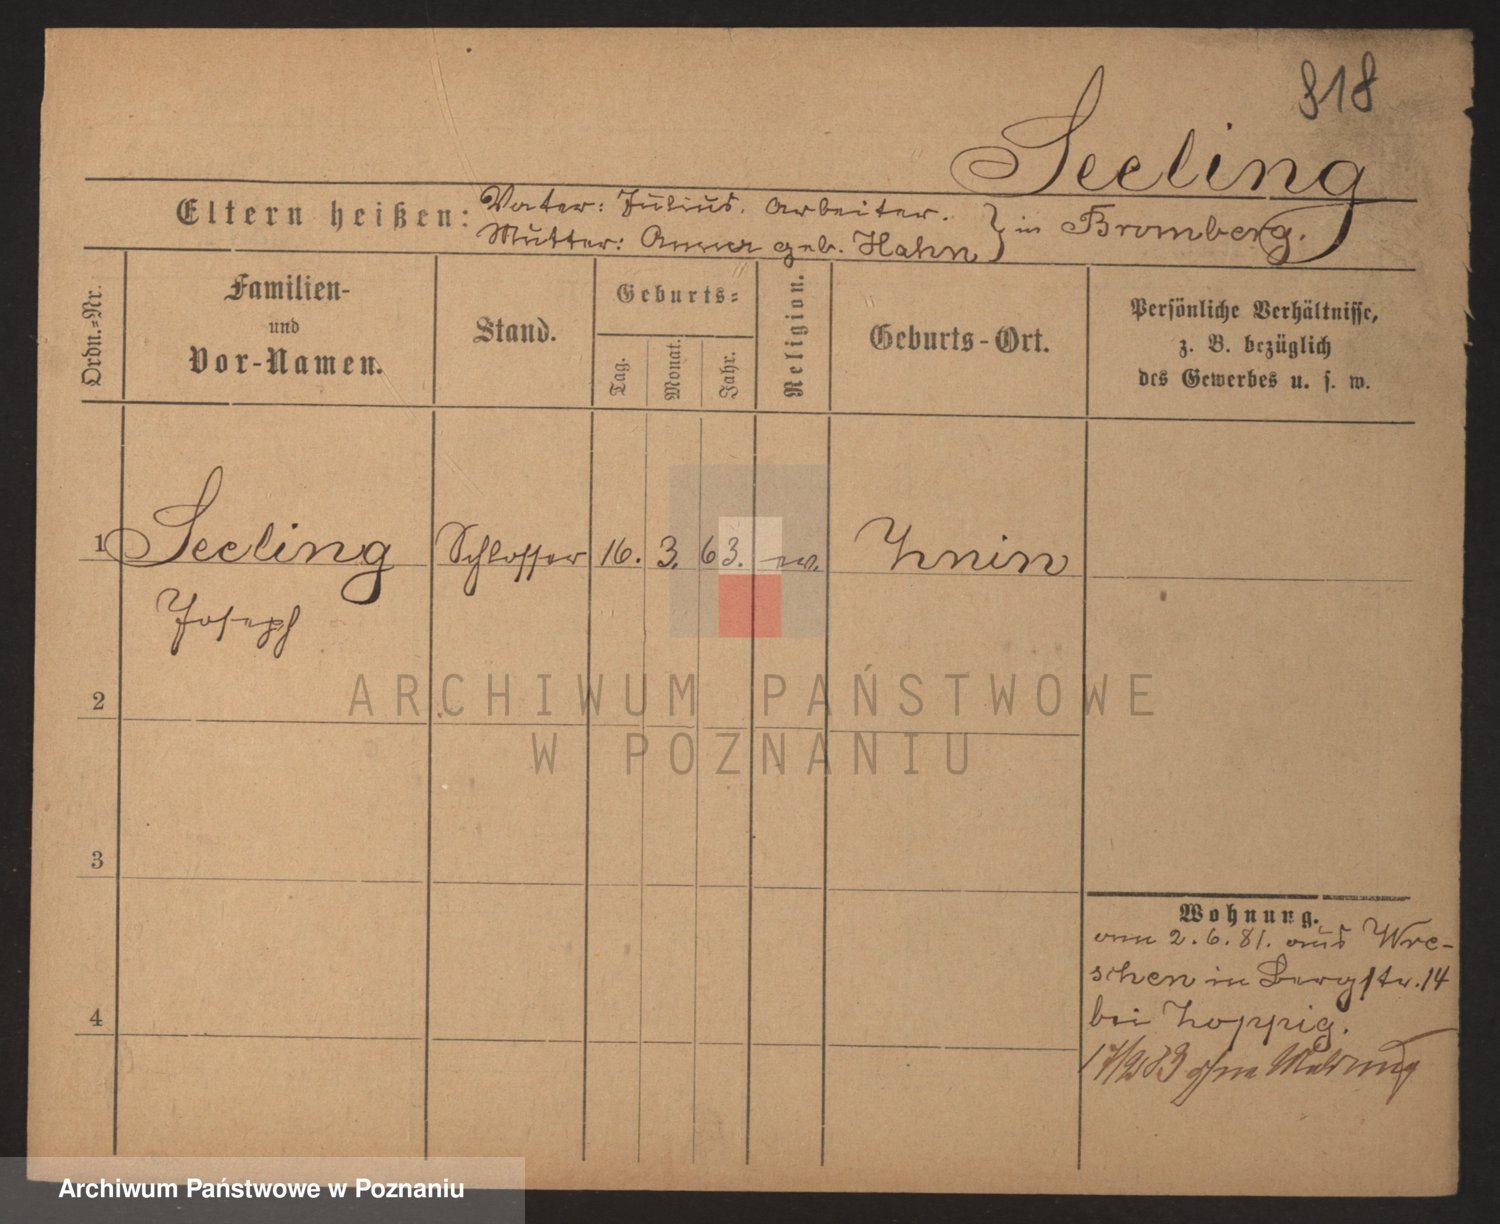 818
Seeling
Eltern heißen: Vater: Julius. Arbeiter.
Mutter: Anna geb. Hahn } in Bromberg.
Ordn.=Nr.
Familien-
und
Vor-Namen.
Stand.
Geburts=
Tag.
Monat.
Jahr.
Religion.
Geburts-Ort.
Persönliche Verhältnisse,
z. B. bezüglich
des Gewerbes u. s. w.
1 Seeling Schlosser 16. 3. 63. ev. Znin
Joseph
2
3
4
ARCHIWUM PAŃSTWOWE
W POZNANIU
Wohnung.
am 2. 6. 81. aus Wre-
schen in Bergstr. 14
bei Zoppig.
17/2 83 ohne Meldung
Archiwum Państwowe w Poznaniu